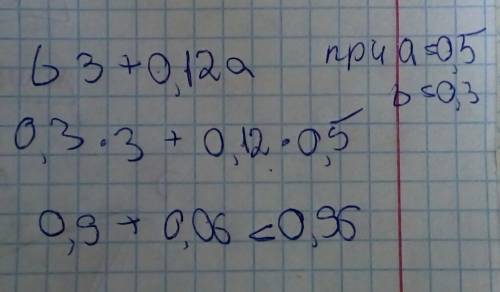 b 3 + 0,12a при a = 0,5
b = 0,3
0,3 · 3 + 0,12 · 0,5
0,9 + 0,06 = 0,96